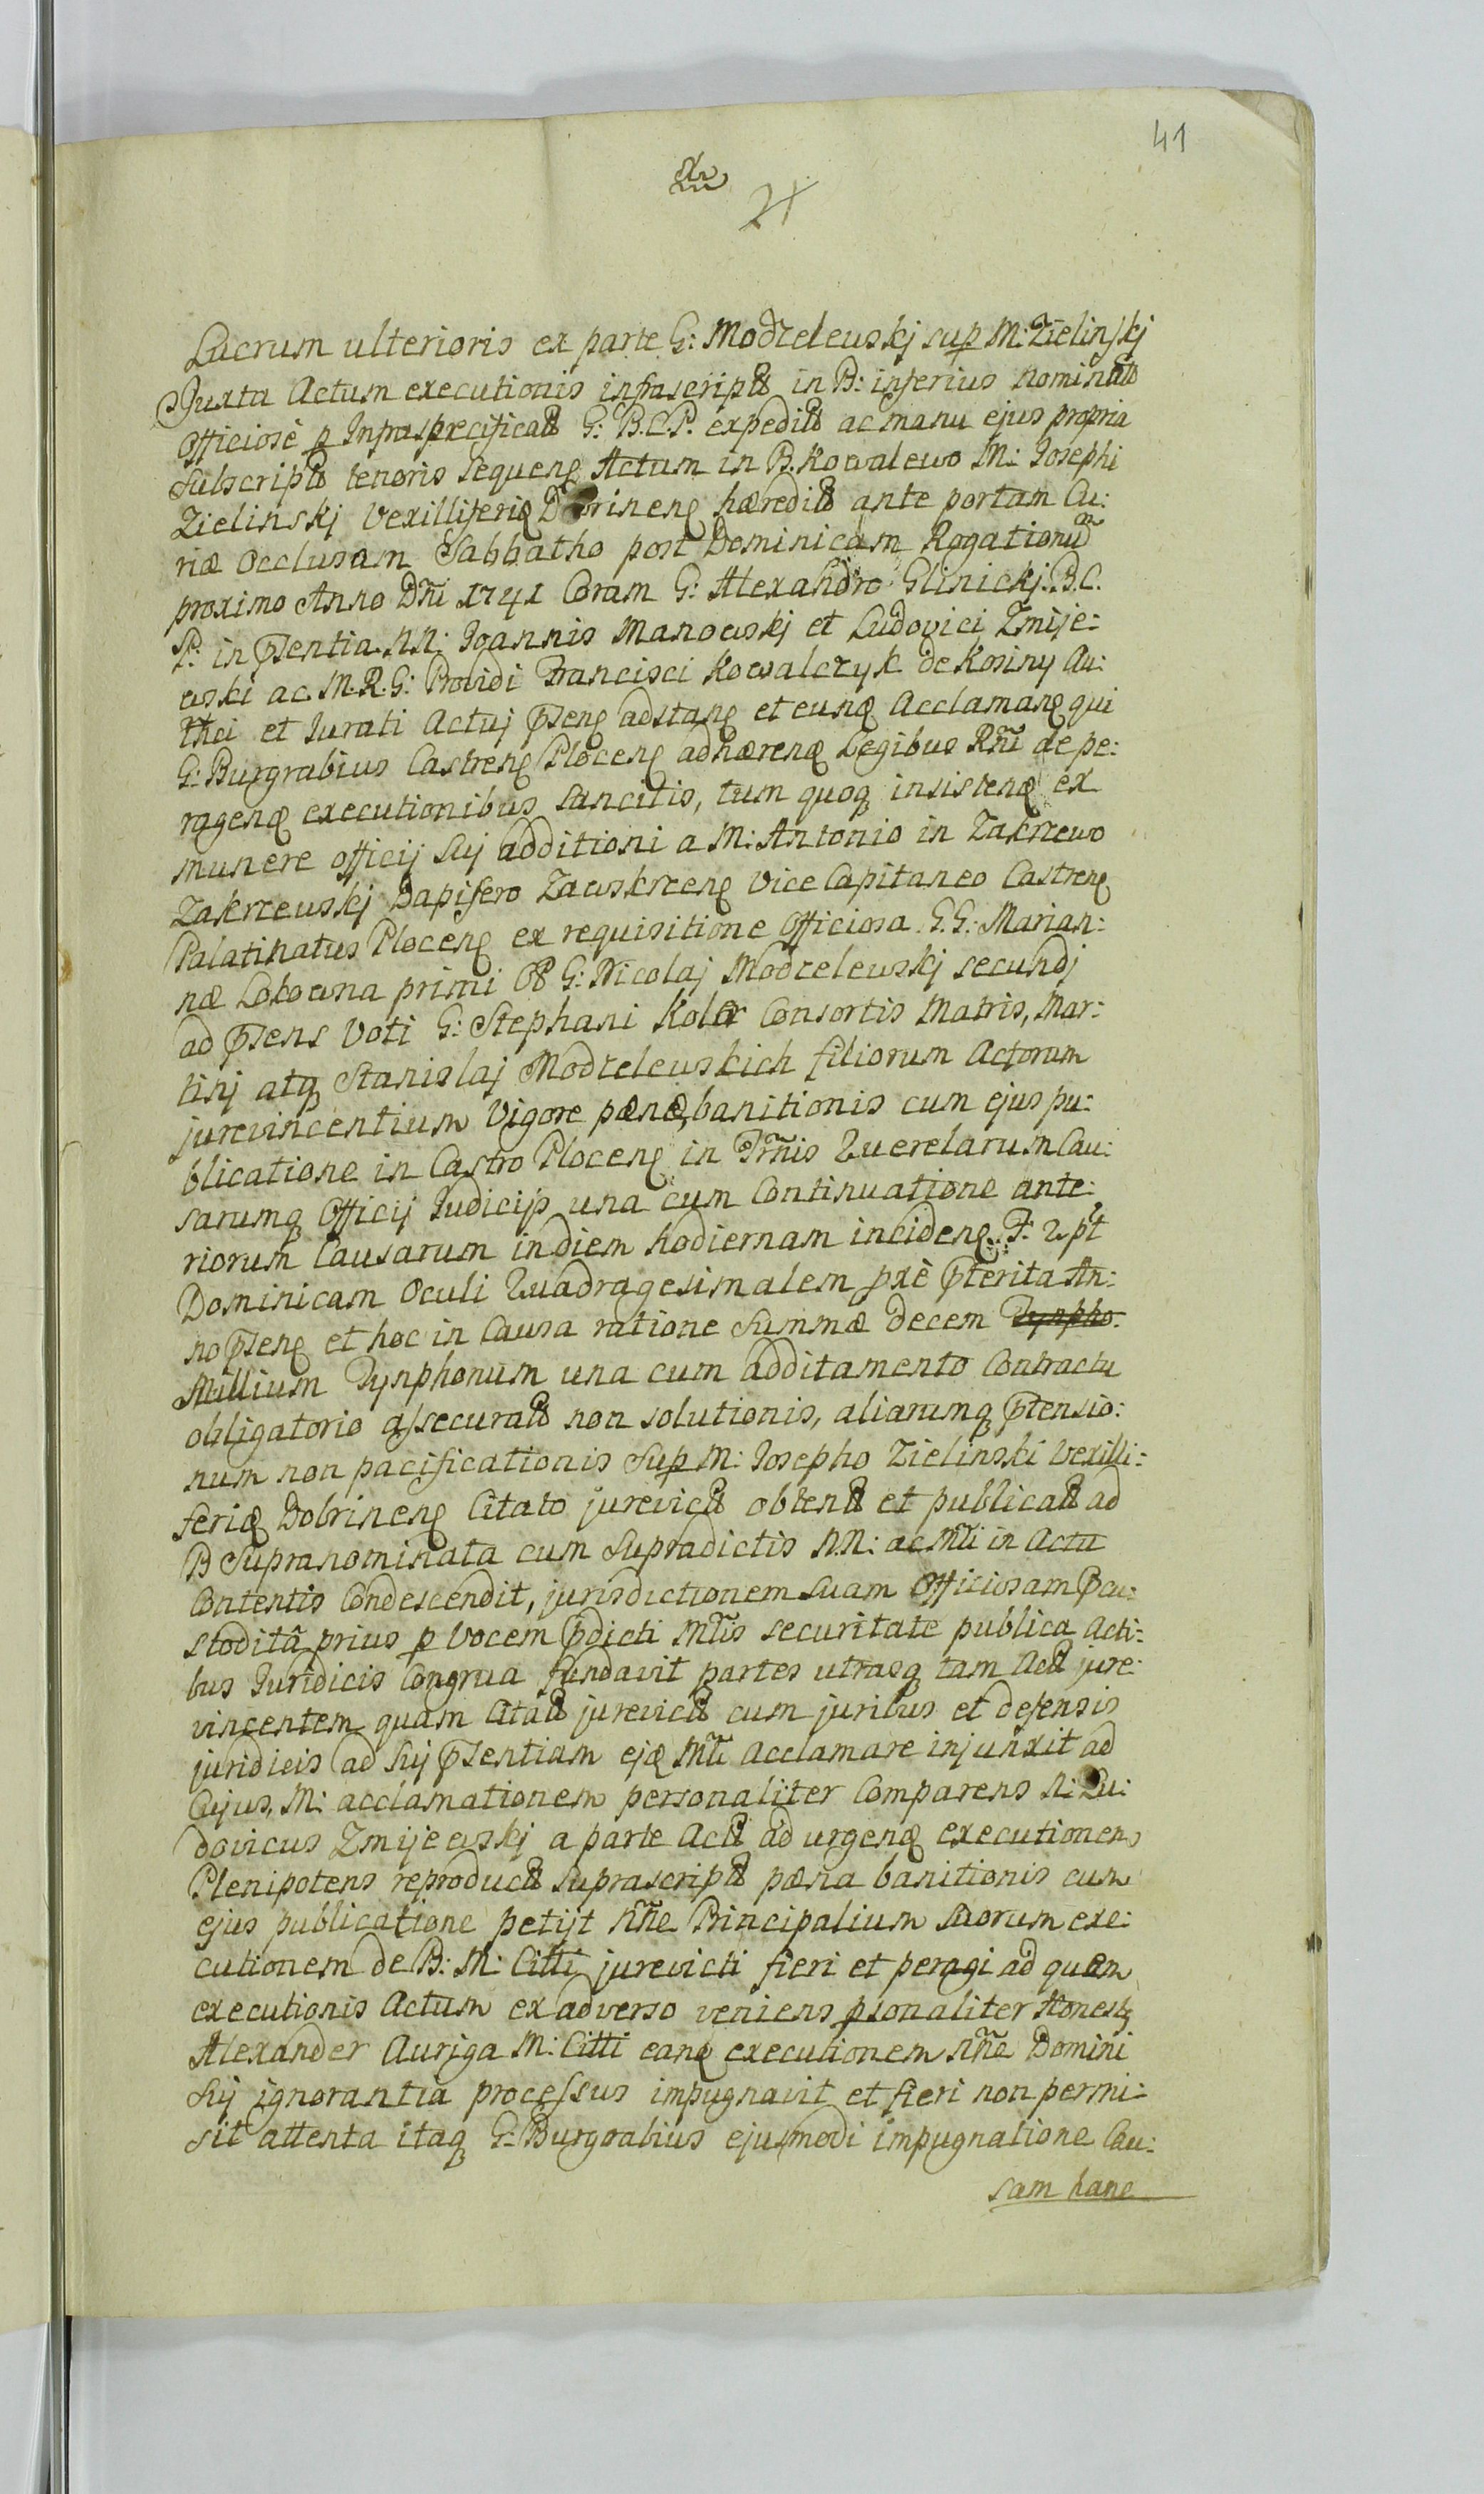 41
21
Lucrum ulterioris ex parte G: Modzelewskj sup M: Zielinskj
Juxta Actum executionis infrascript in B: inferius nominat
Officiosè p Infraspecificat G: B.C.P. expedit ac manu ejus propria
Subscript tenoris sequen Actum in B. Kowalewo M: Josephi
Zielinskj Vexilliferi Dobrinen hæredit ante portam Cu:
riæ Occlusam Sabbatho post Dominicam Rogationum
proximo Anno Dñi 1741 Coram G: Alexandro Glinickj. B.C.
P. in pńsentia. NN: Joannis Manowskj et Ludovici Zmije:
wski ac. M.R.G: Providi Francisci Kowalczyk de Kosiny Au:
thci et Jurati Actuj pńsen adstan et eunq Acclaman qui
G: Burgrabius Castren Plocen adhæren Legibus Rñi de pe:
ragen executionibus sancitis, tum quoq insisten ex
munere officij Sŭj additioni a M: Antonio in Zakrzewo
Zakrzewskj Dapifero Zawskrzen Vice Capitaneo Castren
Palatinatus Plocen ex requisitione Officiosa G.G: Marian:
næ Lotowna primi Ol G: Nicolaj Modzelewskj secundj
ad pńsens Voti G: Stephani Koler Consortis Matris, Mar:
tinj atq Stanislaj Modzelewskich filiorum Actorum
jurevincentium Vigore pænæ banitionis cum ejus pu:
blicatione in Castro Plocen in Trñis Querelarum Cau:
sarumq Officij Judicijs una cum Continuatione ante:
riorum Causarum in diem hodiernam inciden F: 2 pt
Dominicam Oculi Quadragesimalem pxè pterita An:
no pńsen et hoc in Causa ratione Summæ Decem Tynpho:
Millium Tynphonum una cum additamento Contractu
obligatorio assecurat non solutionis, aliarumq ptensio:
num non pacificationis Sup M: Josepho Zielinski Vexilli:
feri Dobrinen Citato jurevict obtent et publicat ad
B Supranominata cum Supradictis N.N: ac Mli in Actu
Contentis Condescendit, jurisdictionem Suam Officiosam pcu:
stoditâ prius p Vocem pdicti Mlis securitate publica Acti:
bus Juridicis Congrua fundavit partes utrasq tam Act jure:
vincentem quam Citat jurevict cum juribus et defensis
juridicis ad Sŭj pńsentiam ejq Mli Acclamare injunxit ad
Cujus, M: acclamationem personaliter Comparens N: Lu:
dovicus Zmijewskj a parte Act ad urgen executionem
Plenipotens reproduct Suprascript pæna banitionis cum
ejus publicatione petijt Nñe Principalium Suorum exe:
cutionem de B: M: Citti jurevicti fieri et peragi ad quem
executionis Actum ex adverso veniens psonaliter Honest
Alexander Auriga M: Citti eanq executionem Nñe Domini
Sŭj ignorantia processus impugnavit et fieri non permi:
sit attenta itaq G: Burgrabius ejusmodi impugnatione Cau:
sam hanc